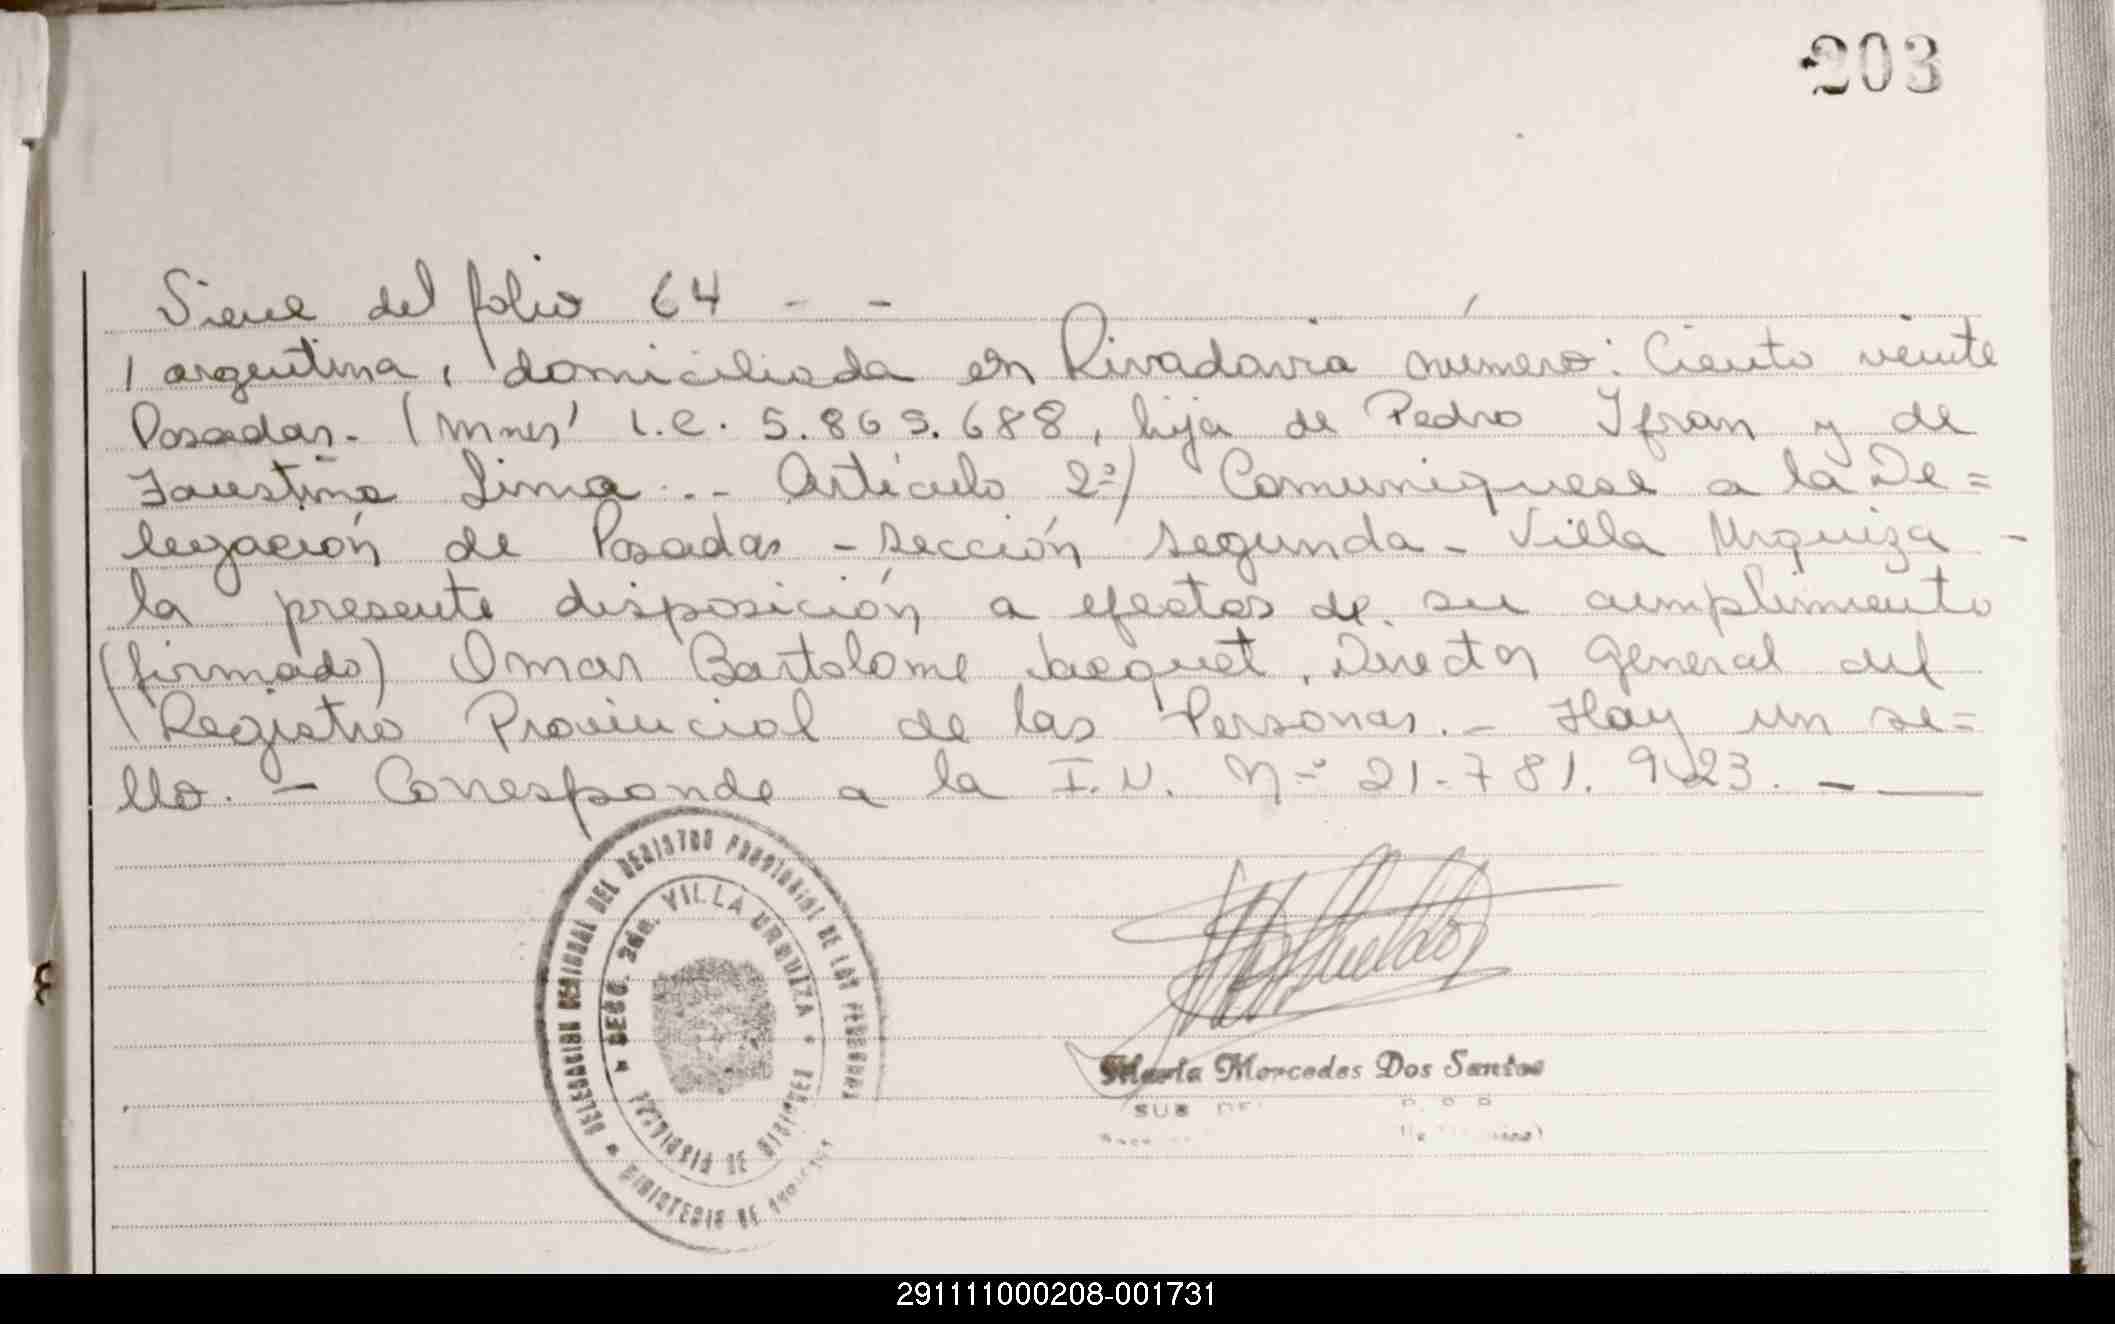 203
Viene del folio 64 - -
argentina, domiciliada en Rivadavia número: Ciento veinte
Posadas.- (Mnes) L.C. 5.869.688, hija de Pedro Ifran y de
Faustina Lima.- Artículo 2º) Comuníquese a la De=
legación de Posadas - Sección Segunda - Villa Urquiza -
la presente disposición a efectos de su cumplimiento
(firmado) Omar Bartolome Jacquet, Director General del
Registro Provincial de las Personas.- Hay un se=
llo.- Corresponde a la I.N. Nº 21.781.923.-
DELEGACION REGIONAL DEL REGISTRO PROVINCIAL DE LAS PERSONAS
SECC. 2da. VILLA URQUIZA
PROVINCIA DE MISIONES
MINISTERIO DE
María Mercedes Dos Santos
SUB
291111000208-001731